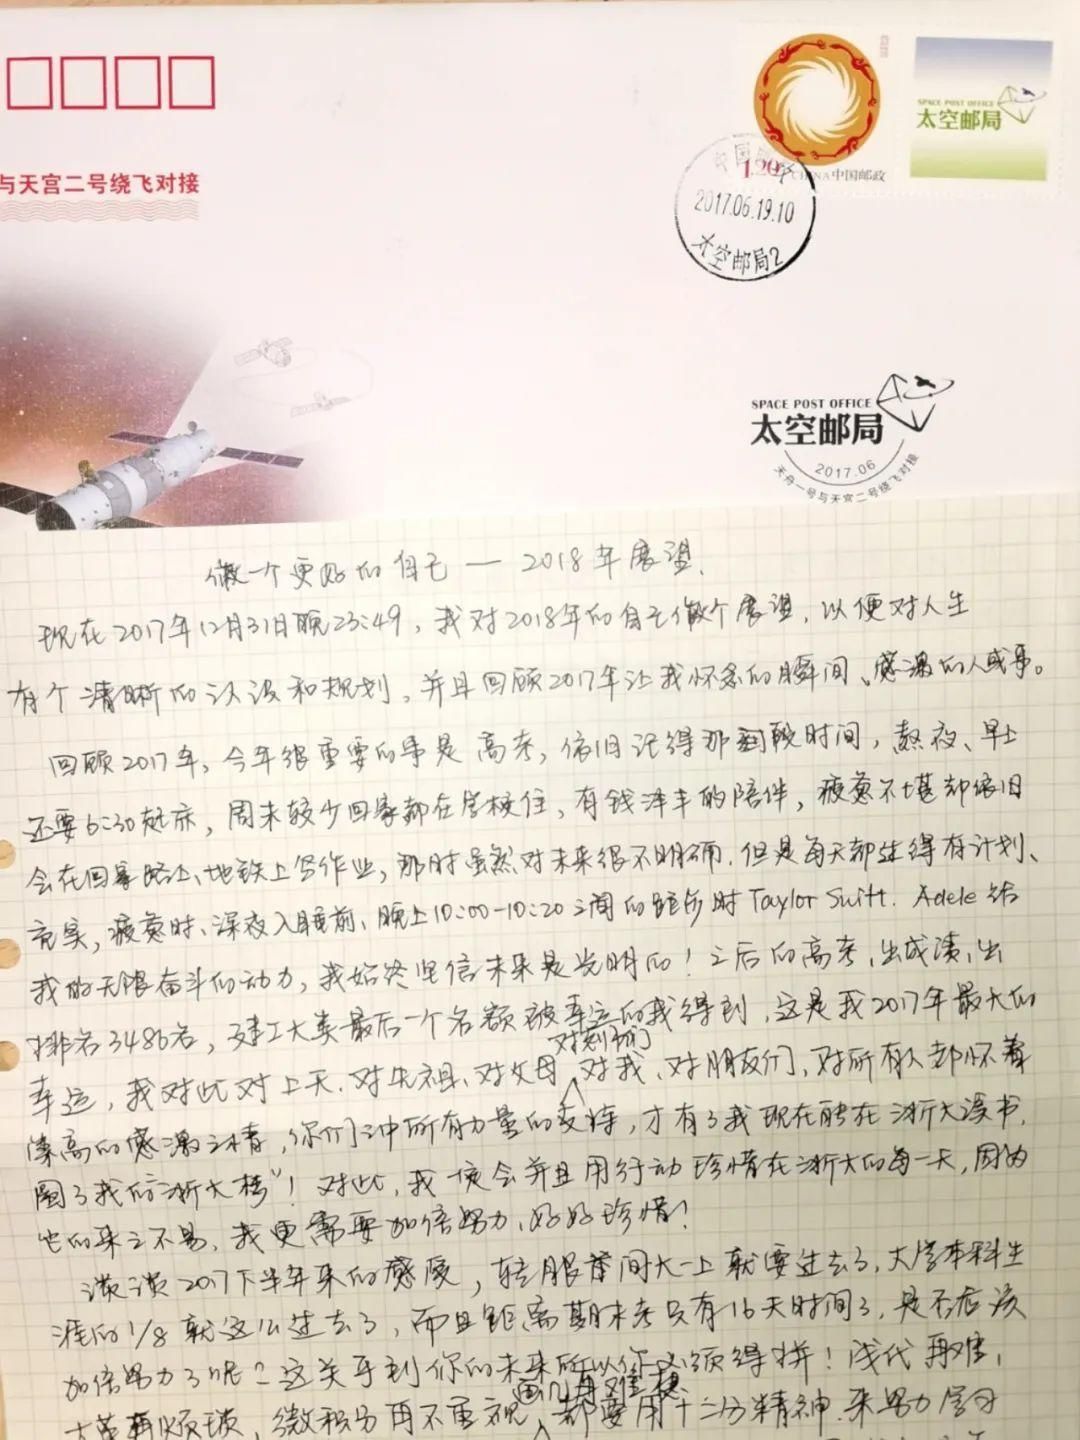 SPACE POST OFFICE
太空邮局
1.20元
CHINA 中国邮政
中国邮政
2017.06.19.10
太空邮局2
与天宫二号绕飞对接
SPACE POST OFFICE
太空邮局
2017.06
天舟一号与天宫二号绕飞对接
做一个更好的自己 — 2018年展望.
现在2017年12月31日晚23:49,我对2018年的自己做个展望,以便对人生
有个清晰的认识和规划。并且回顾2017年让我怀念的瞬间、感激的人或事。
回顾2017年,今年很重要的事是高考,依旧记得那段时间,熬夜、早上
还要6:30起床,周末较少回家都在学校住,有钱泽丰的陪伴,疲惫不堪却依旧
会在回家路上、地铁上写作业,那时虽然对未来很不明确.但是每天都过得有计划、
充实,疲惫时、深夜入睡前、晚上10:00-10:20之间的跑步时Taylor Swift. Adele给
我的无限奋斗的动力,我始终坚信未来是光明的!之后的高考,出成绩,出
排名3486名,理工大类最后一个名额被幸运的我得到,这是我2017年最大的
对老师们
幸运,我对此对上天.对先祖、对父母、对我、对朋友们,对所有人都怀着
崇高的感激之情,你们冲所有力量的支持,才有了我现在能在浙大读书.
圆了我的“浙大梦”!对此,我一定会并且用行动珍惜在浙大的每一天,因为
它的来之不易,我更需要加倍努力、好好珍惜!
谈谈2017下半年来的感受,转眼间大一上就要过去了,大学本科生
涯的1/8就这么过去了,而且距离期末考只有16天时间了,是否应该
加倍努力了呢?这关乎到你的未来所以你必须得拼!线代再难,
再烦琐,微积分再不重视,都要用十二分精神来努力学习